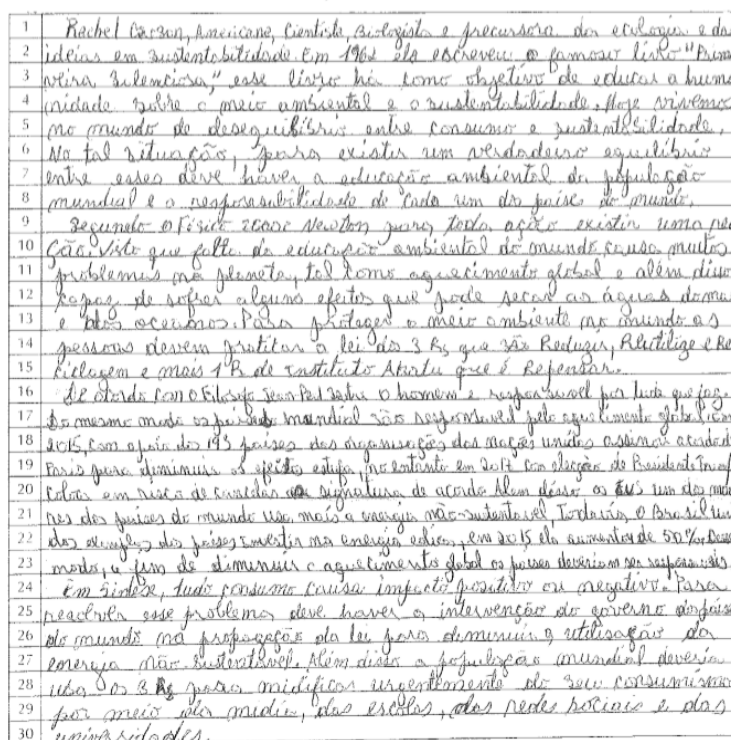 1 Rachel Carson, Americana, Cientista, Biologista e precursora da ecologia e das
2 ideias em sustentabilidade. Em 1962 ela escreveu o famoso livro "Prima
3 veira silenciosa," esse livro há como objetivo de educar a huma
4 nidade sobre o meio ambiental e a sustentabilidade. Hoje vivemos
5 no mundo de desequilíbrio entre consumo e sustentabilidade.
6 No tal situação, para existir um verdadeiro equilíbrio
7 entre esses deve haver a educação ambiental da população
8 mundial e a responsabilidade de cada um do países do mundo.
9 Segundo o Físico Isaac Newton para toda ação existir uma rea
10 ção. Visto que falta da educação ambiental do mundo, causa muitos
11 problemas no planeta, tal como aquecimento global e além disso
12 capaz de sofrer alguns efeitos que pode secar as águas do mar
13 e dos oceanos. Para proteger o meio ambiente no mundo as
14 pessoas devem pratitar a lei dos 3 Rs que são Reduzir, Reutilize e Re
15 ciclagem e mais 1 R de Instituto Akatu que é Repensar.
16 De acordo com o Filosofo Jean Paul Sartre o homem e responsavel por tudo que faz.
17 Do mesmo modo os países mundial são responsavel pelo aquecimento global. Em
18 2015, com apoio do 193 países das organisações das nações unidas assinou acordo de
19 Paris para diminuir os efeito estufa, no entanto em 2017 con eleição de Presidente Trump
20 colos em risco de signatura de acordo. Alem disso os EUS um dos mai
21 res dos países do mundo usa mais a energia não-sustentavel. Todavia, o Brasil um
22 dos exemplos dos países investir na energia eolica, em 2015 ela aumentou de 50%. Desse
23 modo, a fim de diminuir o aquecimento global os países deveriam ser responsaveis
24 Em síntese, tudo consumo causa impacto positivo ou negativo. Para
25 resolver esse problema deve haver a intervenção do governo do país
26 do mundo na propagação da lei para diminuir a utilisação da
27 energia não sustentável. Além disso a população mundial deveria
28 usa os 3 Rs para midificar urgentemente do seu consumismo
29 por meio da midia, das escolas, das redes sociais e das
30 universidades.